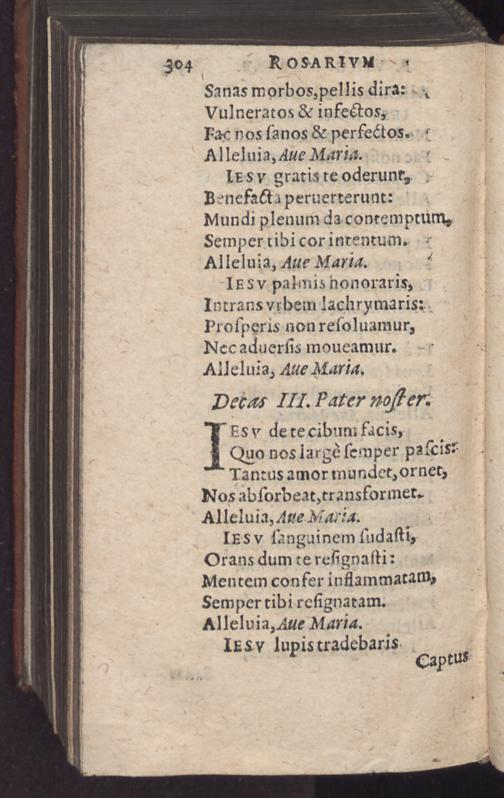 304 ROSARIVM
Sanas morbos, pellis dira:
Vulneratos & infectos,
Fac nos ſanos & perfectos.
Alleluia, Aue Maria.
IESV gratis te oderunt,
Benefacta peruerterunt:
Mundi plenum da contemptum,
Semper tibi cor intentum.
Alleluia, Aue Maria.
IESV palmis honoraris,
Intrans vrbem lachrymaris:
Proſperis non reſoluamur,
Nec aduerſis moueamur.
Alleluia, Aue Maria.
Decas III. Pater noſter.
IESV de te cibum facis,
Quo nos largè ſemper paſcis:
Tantus amor mundet, ornet,
Nos abſorbeat, transformet.
Alleluia, Aue Maria.
IESV ſanguinem ſudaſti,
Orans dum te reſignaſti:
Mentem confer inflammatam,
Semper tibi reſignatam.
Alleluia, Aue Maria.
IESV lupis tradebaris
Captus